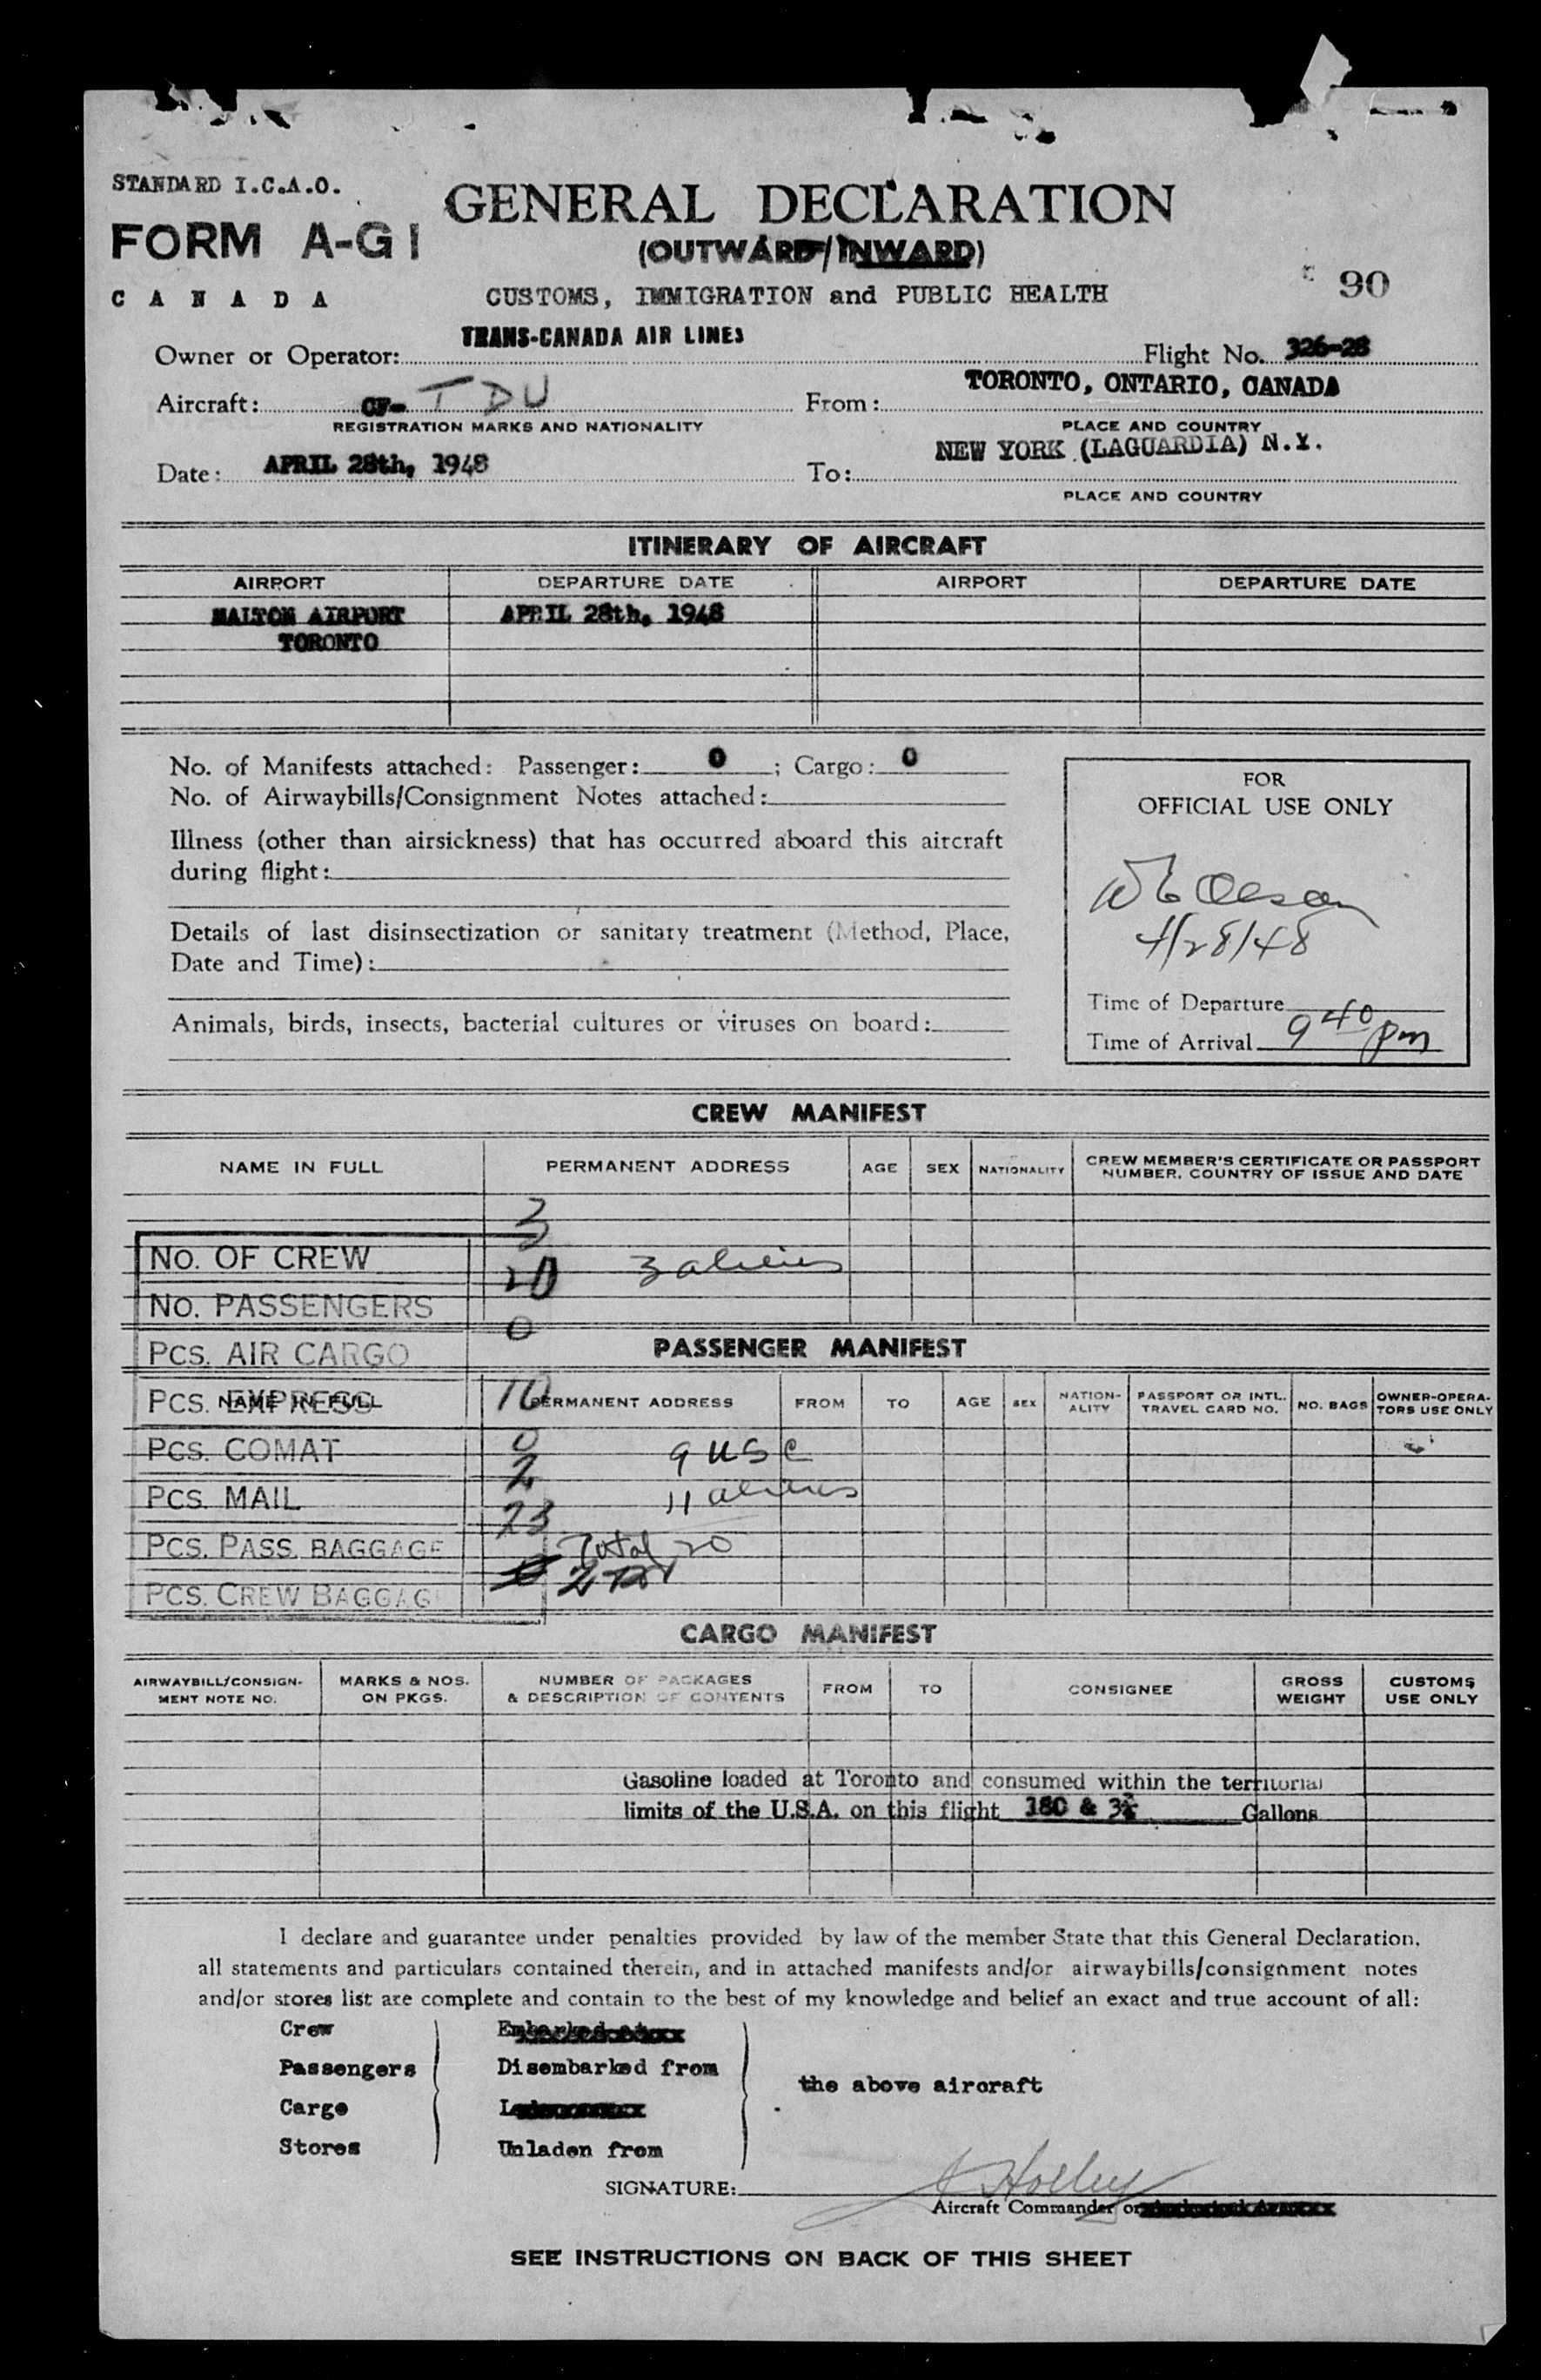 STANDARD I.C.A.O.
FORM A-G1
CANADA
GENERAL DECLARATION
(OUTWARD/INWARD)
CUSTOMS, IMMIGRATION and PUBLIC HEALTH
90
Owner or Operator: TRANS-CANADA AIR LINES
Flight No. 326-28
Aircraft: CF- TDU
REGISTRATION MARKS AND NATIONALITY
From: TORONTO, ONTARIO, CANADA
PLACE AND COUNTRY
Date: APRIL 28th, 1948
To: NEW YORK (LAGUARDIA) N.Y.
PLACE AND COUNTRY
ITINERARY OF AIRCRAFT
AIRPORT DEPARTURE DATE AIRPORT DEPARTURE DATE
MALTON AIRPORT APRIL 28th, 1948
TORONTO
No. of Manifests attached: Passenger: 0 ; Cargo: 0
No. of Airwaybills/Consignment Notes attached:
Illness (other than airsickness) that has occurred aboard this aircraft
during flight:
Details of last disinsectization or sanitary treatment (Method, Place,
Date and Time):
Animals, birds, insects, bacterial cultures or viruses on board:
FOR
OFFICIAL USE ONLY
4/28/48
Time of Departure
Time of Arrival 9 40 pm
CREW MANIFEST
NAME IN FULL PERMANENT ADDRESS AGE SEX NATIONALITY CREW MEMBER'S CERTIFICATE OR PASSPORT
NUMBER, COUNTRY OF ISSUE AND DATE
No. OF CREW 3
3 aliens
No. PASSENGERS 20
PCS. AIR CARGO 0
PASSENGER MANIFEST
NAME IN FULL PERMANENT ADDRESS FROM TO AGE SEX NATION-
ALITY PASSPORT OR INTL.
TRAVEL CARD NO. NO. BAGS OWNER-OPERA-
TORS USE ONLY
PCS. EXPRESS 10
PCS. COMAT 0
9 USC
PCS. MAIL 2
11 aliens
PCS. PASS. BAGGAGE 23
Total 20
PCS. CREW BAGGAG
2
CARGO MANIFEST
AIRWAYBILL/CONSIGN-
MENT NOTE NO. MARKS & NOS.
ON PKGS. NUMBER OF PACKAGES
& DESCRIPTION OF CONTENTS FROM TO CONSIGNEE GROSS
WEIGHT CUSTOMS
USE ONLY
Gasoline loaded at Toronto and consumed within the territorial
limits of the U.S.A. on this flight 180 & Gallons
I declare and guarantee under penalties provided by law of the member State that this General Declaration,
all statements and particulars contained therein, and in attached manifests and/or airwaybills/consignment notes
and/or stores list are complete and contain to the best of my knowledge and belief an exact and true account of all:
Crew
Passengers Disembarked from
the above aircraft
Cargo
Stores Unladen from
SIGNATURE: Holley
Aircraft Commander or
SEE INSTRUCTIONS ON BACK OF THIS SHEET